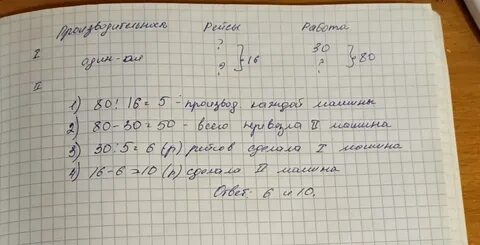 Производительность Рейсы Работа
I ? 30
один-кая } 16 } 80
? ?
II
1) 80 : 16 = 5 - производ. каждой машины
2) 80 - 30 = 50 - всего перевезла II машина
3) 30 : 5 = 6 (р) рейсов сделала I машина
4) 16 - 6 = 10 (р) сделала II машина
Ответ: 6 и 10.